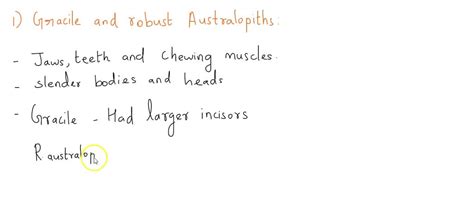 1) Gracile and robust Australopiths:
- Jaws, teeth and chewing muscles.
- slender bodies and heads
- Gracile - Had larger incisors
R australop